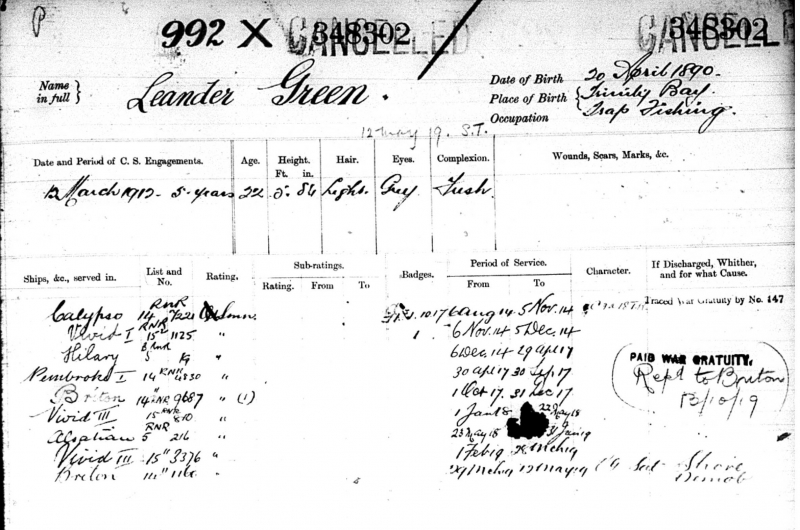 P
992 X CANCELLED 348302 CANCELLED 348302
Name in full } Leander Green.
Date of Birth 20 April 1890-
Place of Birth { Trinity Bay.
Occupation Trap Fishing.
12 May 19. S.T.
Date and Period of C. S. Engagements. Age. Height. Ft. in. Hair. Eyes. Complexion. Wounds, Scars, Marks, &c.
12 March 1912 - 5 years 22 5. 8½ Light. Grey Fresh.
Ships, &c., served in. List and No. Rating. Sub-ratings. Rating. From To Badges. Period of Service. From To Character. If Discharged, Whither, and for what Cause.
Calypso RNR 14 Smn. 6 Aug 14 5 Nov. 14 Traced War Gratuity by No. 147
Vivid I RNR 15 1125 " 1 6 Nov. 14 5 Dec. 14
Hilary RNR 5 19 " 6 Dec. 14 29 Apl 17
Pembroke I 14 RNR 4830 " 30 apl 17 30 Sep 17
Briton 14 RNR 9687 " (1) 1 Oct 17. 31 Dec 17
Vivid III 15 RNR 810 " 1 Jan 18 22 May 18
Alsatian RNR 5 216 " 23 May 18 31 Jan 19
Vivid III 15" 3376 " 1 Feb 19 Mch 19
Briton " 29 Mch 19 12 May 19 Shore Demob
PAID WAR GRATUITY.
Rept to Briton
13/10/19